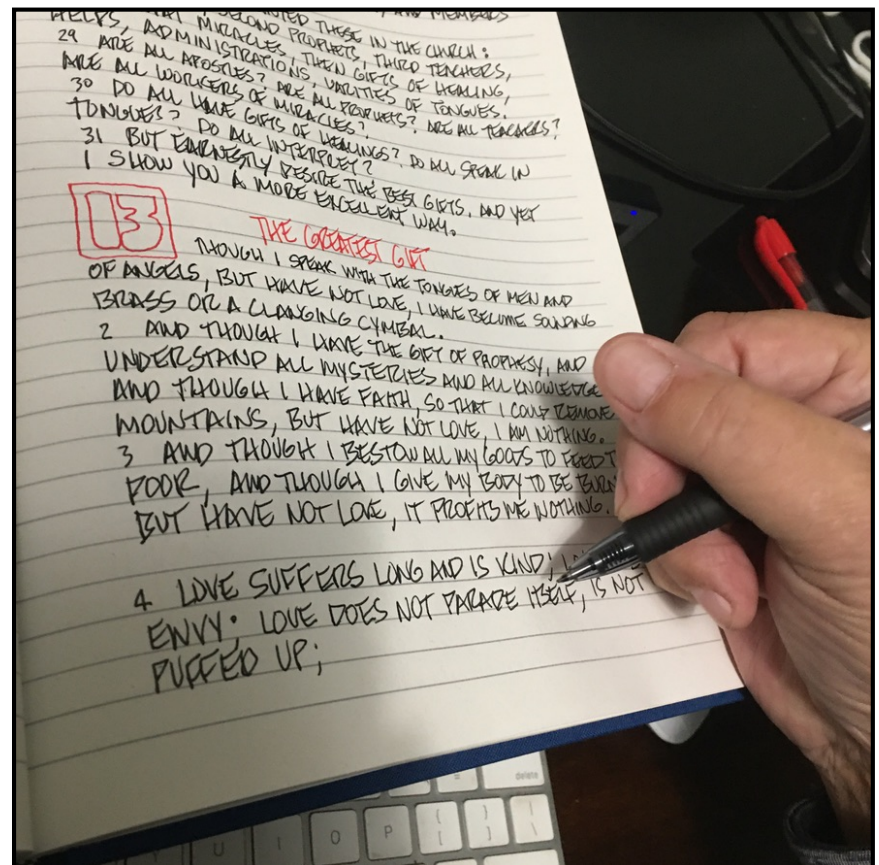 AND MEMBERS
THESE IN THE CHURCH:
SECOND PROPHETS, THIRD TEACHERS,
MIRACLES, THEN GIFTS OF HEALING,
HELPS, ADMINISTRATIONS, VARITIES OF TONGUES.
29 ARE ALL APOSTLES? ARE ALL PROPHETS? ARE ALL TEACHERS?
ARE ALL WORKERS OF MIRACLES?
30 DO ALL HAVE GIFTS OF HEALINGS? DO ALL SPEAK IN
TONGUES? DO ALL INTERPRET?
31 BUT EARNESTLY DESIRE THE BEST GIFTS. AND YET
I SHOW YOU A MORE EXCELLENT WAY.
13
THE GREATEST GIFT
THOUGH I SPEAK WITH THE TONGUES OF MEN AND
OF ANGELS, BUT HAVE NOT LOVE, I HAVE BECOME SOUNDING
BRASS OR A CLANGING CYMBAL.
2 AND THOUGH I HAVE THE GIFT OF PROPHESY, AND
UNDERSTAND ALL MYSTERIES AND ALL KNOWLEDGE
AND THOUGH I HAVE FAITH, SO THAT I COULD REMOVE
MOUNTAINS, BUT HAVE NOT LOVE, I AM NOTHING.
3 AND THOUGH I BESTOW ALL MY GOODS TO FEED T
POOR, AND THOUGH I GIVE MY BODY TO BE BURN
BUT HAVE NOT LOVE, IT PROFITS ME NOTHING.
4 LOVE SUFFERS LONG AND IS KIND;
ENVY; LOVE DOES NOT PARADE ITSELF, IS NOT
PUFFED UP;
delete
U I O P { [ } ] | \